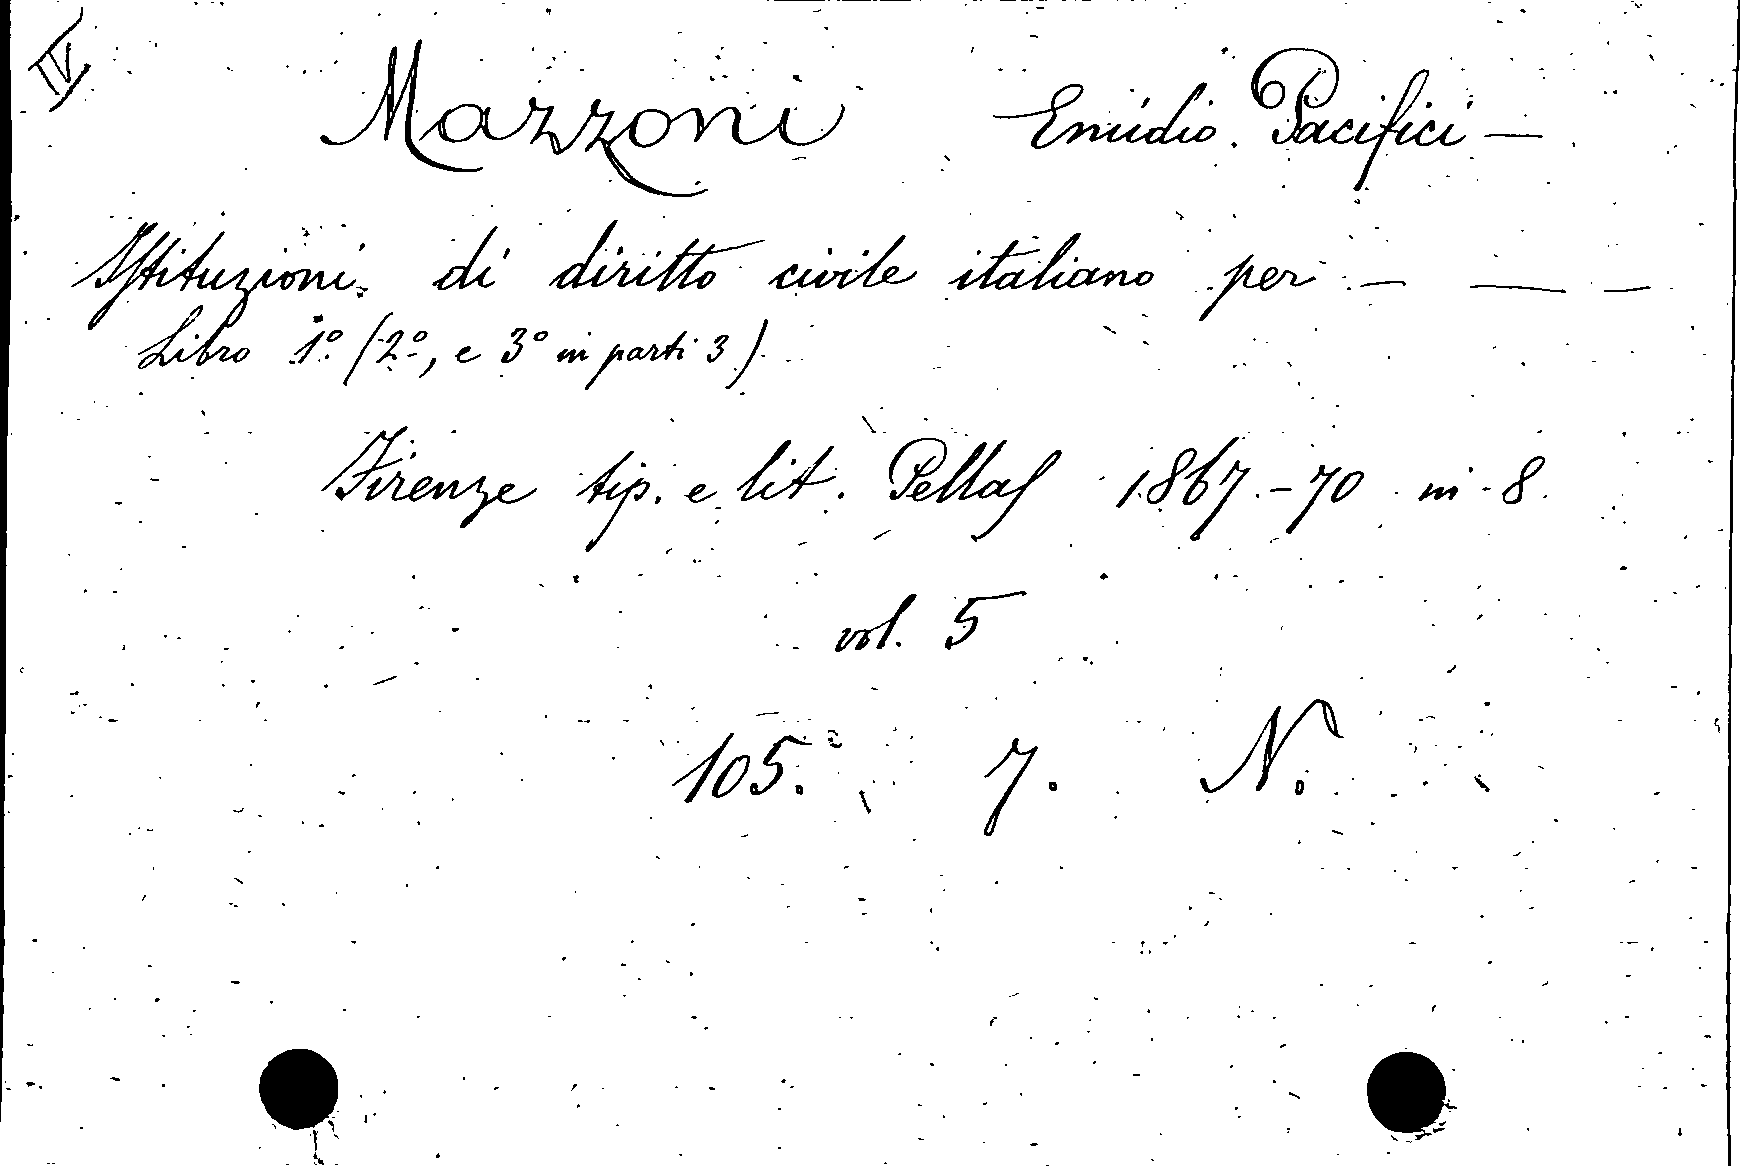 IV
Mazzoni Emidio Pacifici —
Istituzioni di diritto civile italiano per — — —
Libro 1º (2º, e 3º in parti 3)
Firenze tip. e lit. Pellas 1867.-70 in-8.
vol. 5
105. 7. N.